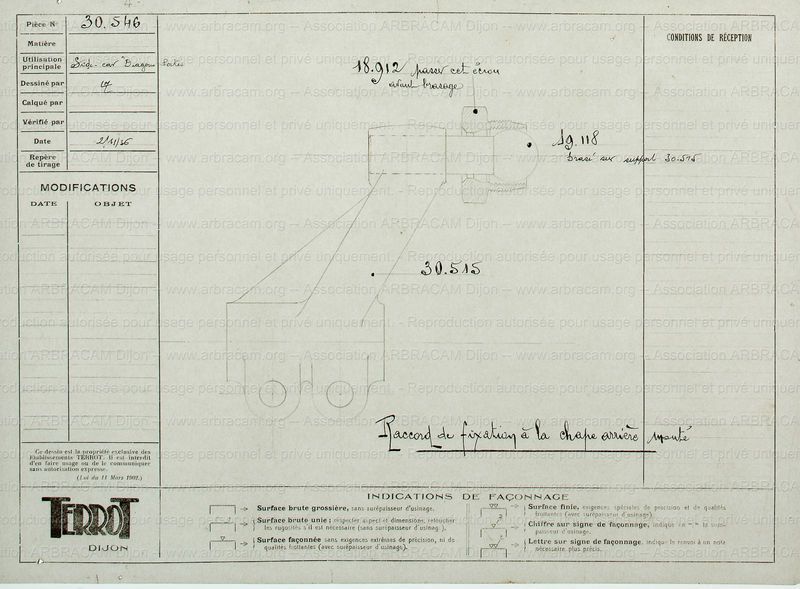 Pièce N° 30.546
Matière
Utilisation principale Side-car "Dragon" Portes
Dessiné par
Calqué par
Vérifié par
Date 2/11/36
Repère de tirage
MODIFICATIONS
DATE OBJET
CONDITIONS DE RÉCEPTION
18.912 passer cet écrou
avant brasage
19.118
brasé sur support 30.515
30.515
Raccord de fixation à la chape arrière monté
Ce dessin est la propriété exclusive des
Etablissements TERROT. Il est interdit
d'en faire usage ou de le communiquer
sans autorisation expresse.
(Loi du 11 Mars 1902.)
TERROT
DIJON
INDICATIONS DE FAÇONNAGE
Surface brute grossière, sans surépaisseur d'usinage.
Surface brute unie ; respecter aspect et dimensions, retoucher
les rugosités s'il est nécessaire (sans surépaisseur d'usinage).
Surface façonnée sans exigences extrêmes de précision, ni de
qualités frottantes (avec surépaisseur d'usinage).
Surface finie, exigences spéciales de précision et de qualités
frottantes (avec surépaisseur d'usinage).
Chiffre sur signe de façonnage, indique la surépaisseur d'usinage.
Lettre sur signe de façonnage, indique le renvoi à une note
nécessaire plus précise.
www.arbracam.org – Association ARBRACAM Dijon
Reproduction autorisée pour usage personnel et privé uniquement.